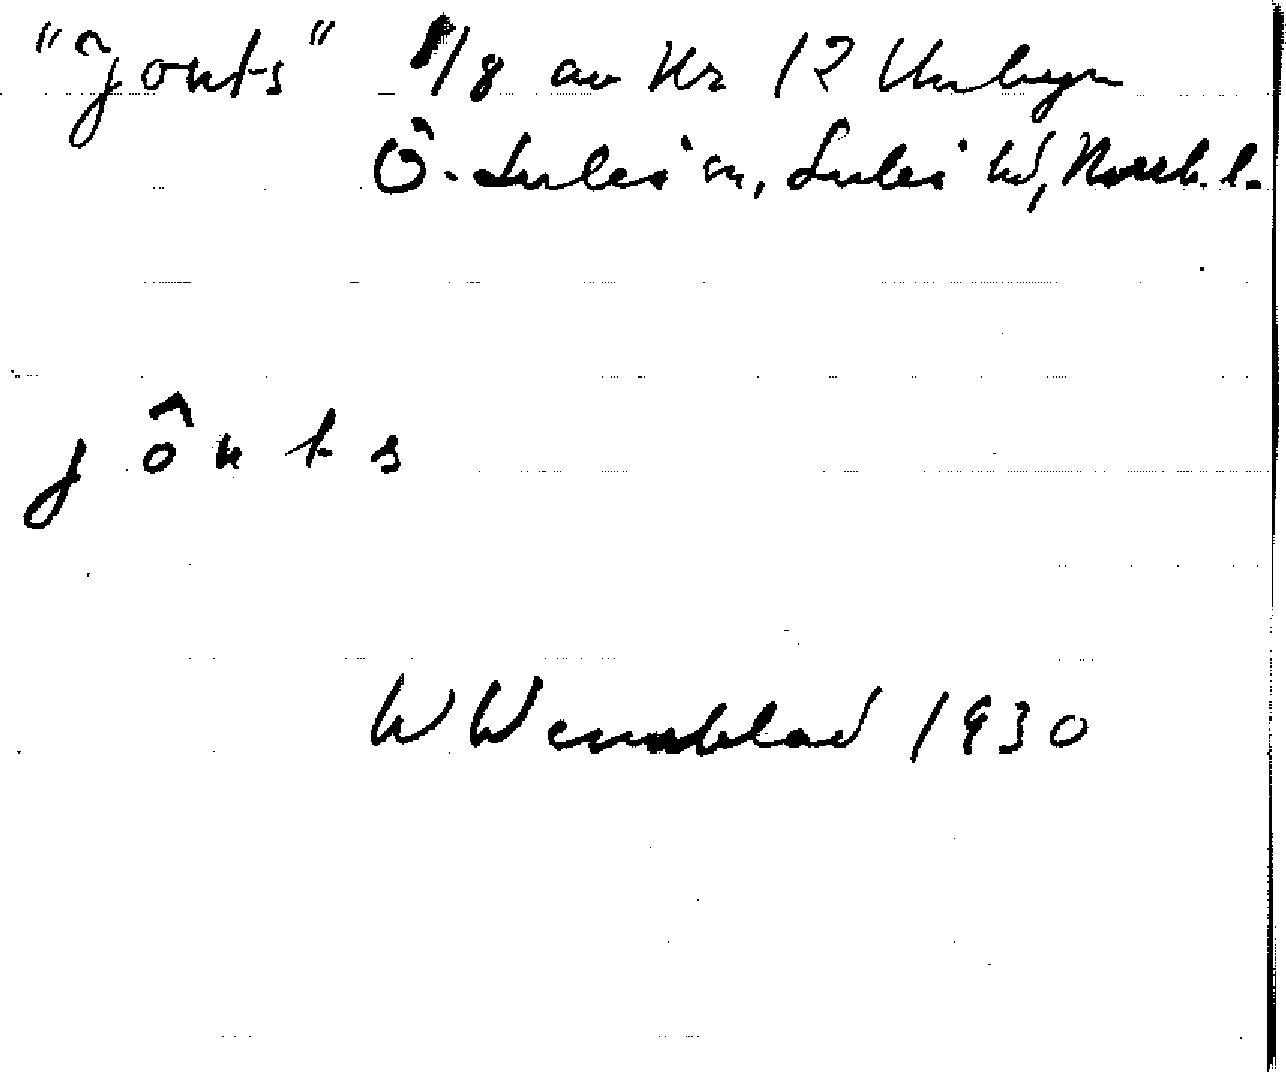 "Jonts" 1/8 av Nr 12 Unbyn
Ö. Luleå sn, Luleå td, Norrb. l.
jônts
W Wennblad 1930